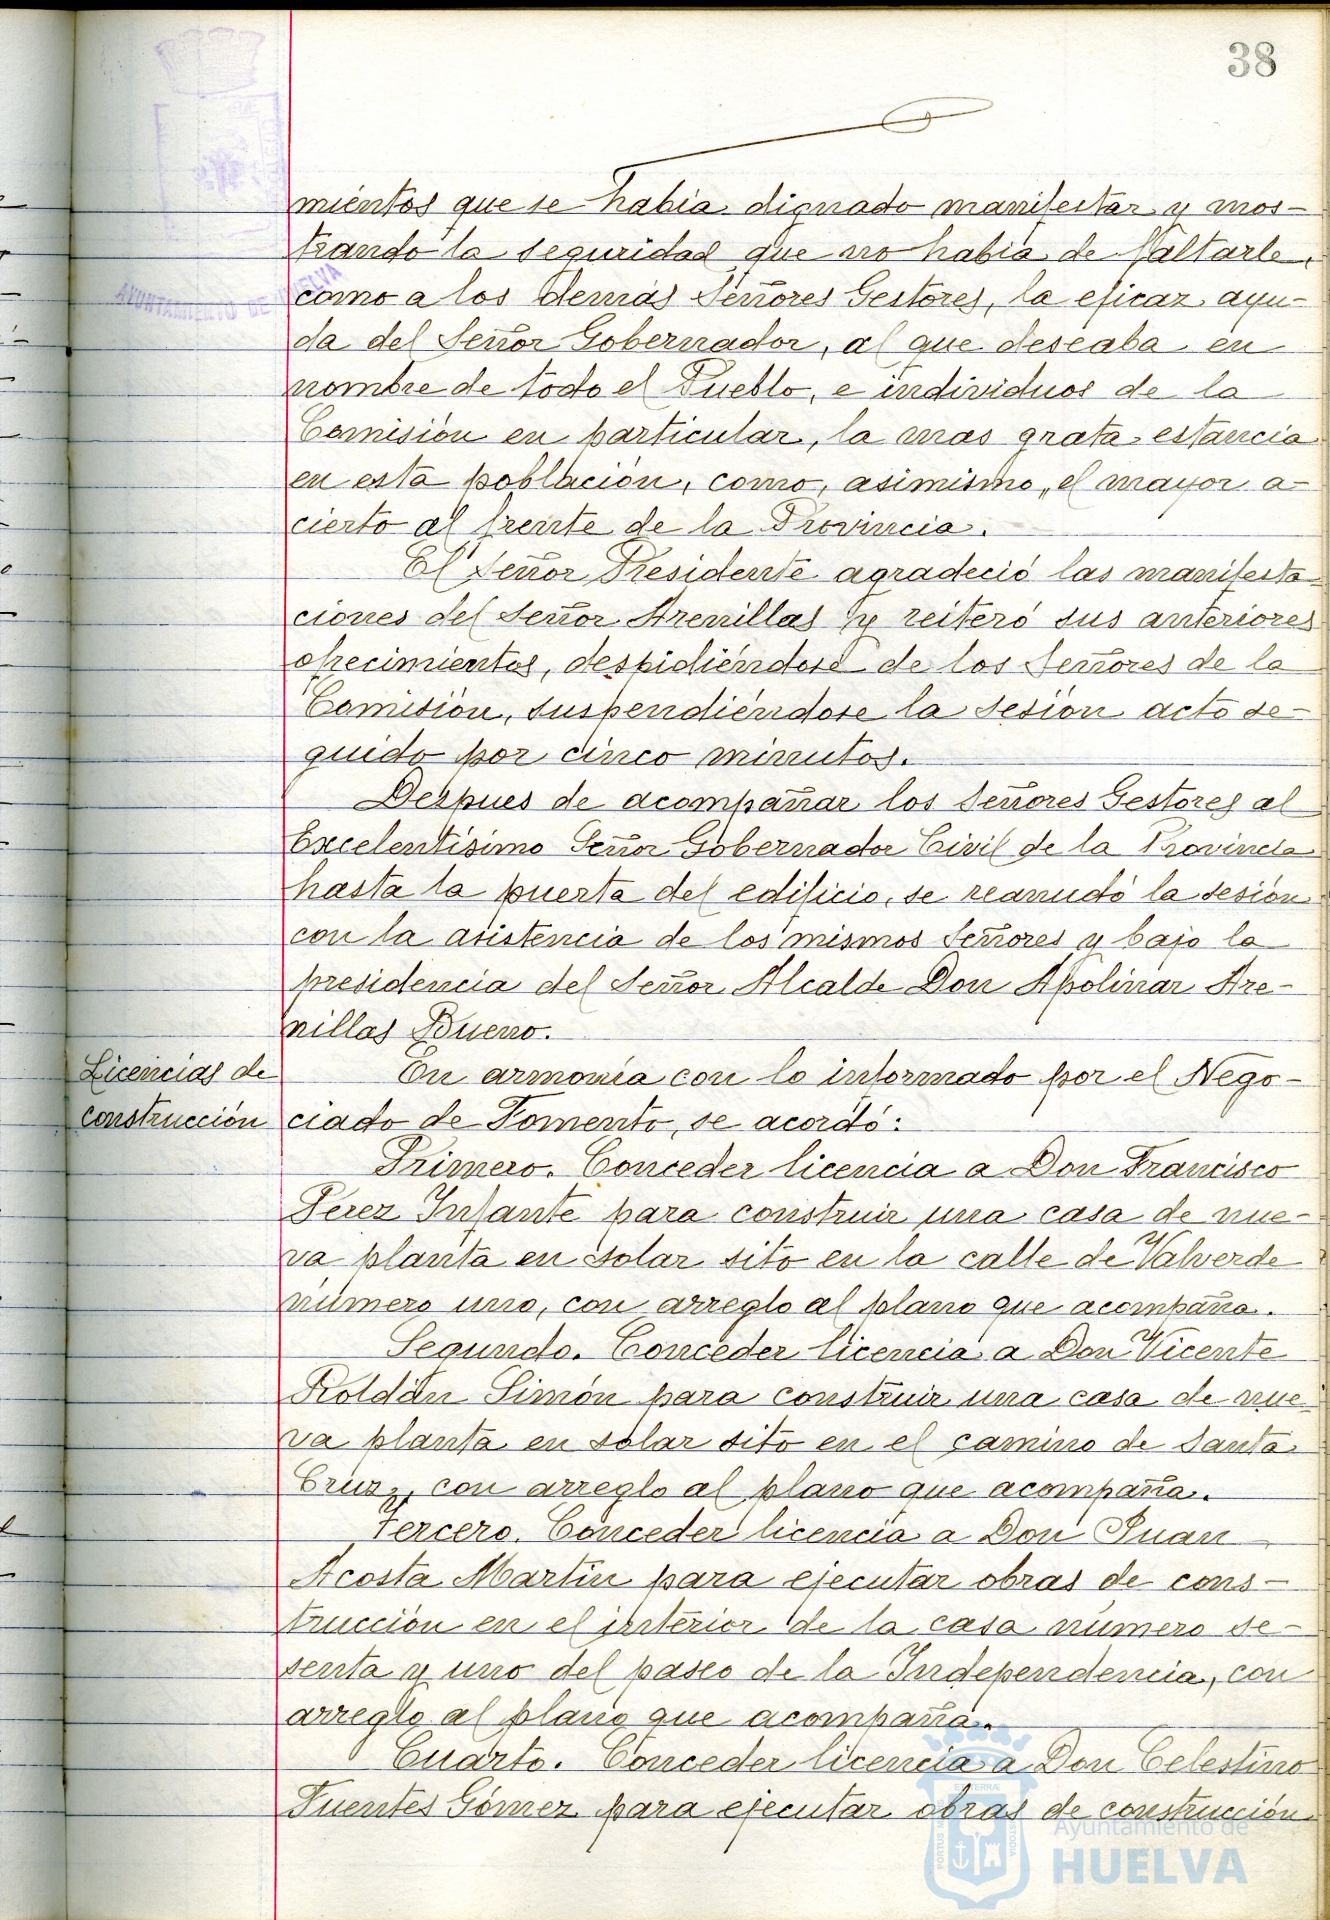 38
mientos que se había dignado manifestar y mos-
trando la seguridad que no había de faltarle,
como a los demás Señores Gestores, la eficaz ayu-
da del Señor Gobernador, al que deseaba en
nombre de todo el Pueblo, e individuos de la
Comisión en particular, la mas grata estancia
en esta población, como, asimismo, el mayor a-
cierto al frente de la Provincia.
El Señor Presidente agradeció las manifesta-
ciones del Señor Arenillas y reiteró sus anteriores
ofrecimientos, despidiéndose de los Señores de la
Comisión, suspendiéndose la sesión acto se-
guido por cinco minutos.
Despues de acompañar los Señores Gestores al
Excelentísimo Señor Gobernador Civil de la Provincia
hasta la puerta del edificio, se reanudó la sesión
con la asistencia de los mismos Señores y bajo la
presidencia del Señor Alcalde Don Apolinar Are-
nillas Bueno.
Licencias de
construcción
En armonía con lo informado por el Nego-
ciado de Fomento, se acordó:
Primero. Conceder licencia a Don Francisco
Pérez Infante para construir una casa de nue-
va planta en solar sito en la calle de Valverde
número uno, con arreglo al plano que acompaña.
Segundo. Conceder licencia a Don Vicente
Roldán Simón para construir una casa de nue-
va planta en solar sito en el camino de Santa
Cruz, con arreglo al plano que acompaña.
Tercero. Conceder licencia a Don Juan
Acosta Martín para ejecutar obras de cons-
trucción en el interior de la casa número se-
senta y uno del paseo de la Independencia, con
arreglo al plano que acompaña.
Cuarto. Conceder licencia a Don Celestino
Fuentes Gómez para ejecutar obras de construcción
AYUNTAMIENTO DE HUELVA
Ayuntamiento de
HUELVA